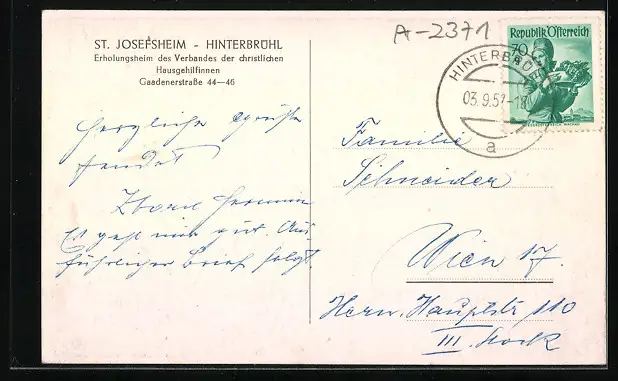 A-2371
ST. JOSEFSHEIM - HINTERBRÜHL
Erholungsheim des Verbandes der christlichen
Hausgehilfinnen
Gaadenerstraße 44—46
Republik Österreich
70
HINTERBRÜHL
03.9.5
a
Herzliche Grüße
sendet
Es geht mir gut. Aus-
führlicher Brief folgt.
Familie
Schneider
Wien 17.
Hern. Hauptstr 110
III. Stock